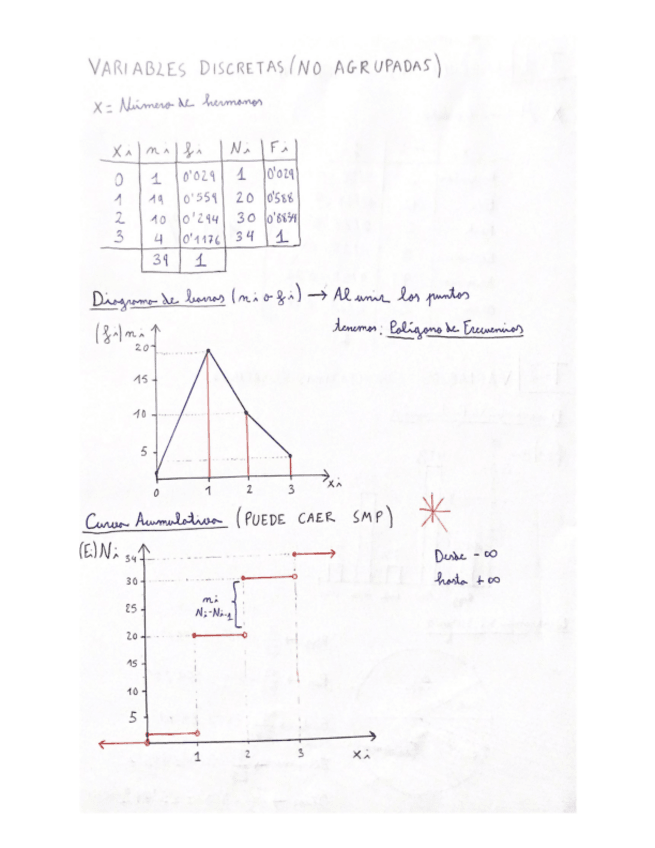 VARIABLES DISCRETAS (NO AGRUPADAS)
X = Número de hermanos
Xi ni fi Ni Fi
0 1 0'029 1 0'029
1 19 0'559 20 0'588
2 10 0'294 30 0'8834
3 4 0'1176 34 1
34 1
Diagrama de barras (ni o fi) → Al unir los puntos
tenemos: Polígono de Frecuencias
(fi) ni
20
15
10
5
0 1 2 3 Xi
Curva Acumulativa (PUEDE CAER SMP)
(Fi) Ni
Desde -∞
hasta +∞
34
30
25
20
15
10
5
ni
Ni-Ni-1
1 2 3 Xi